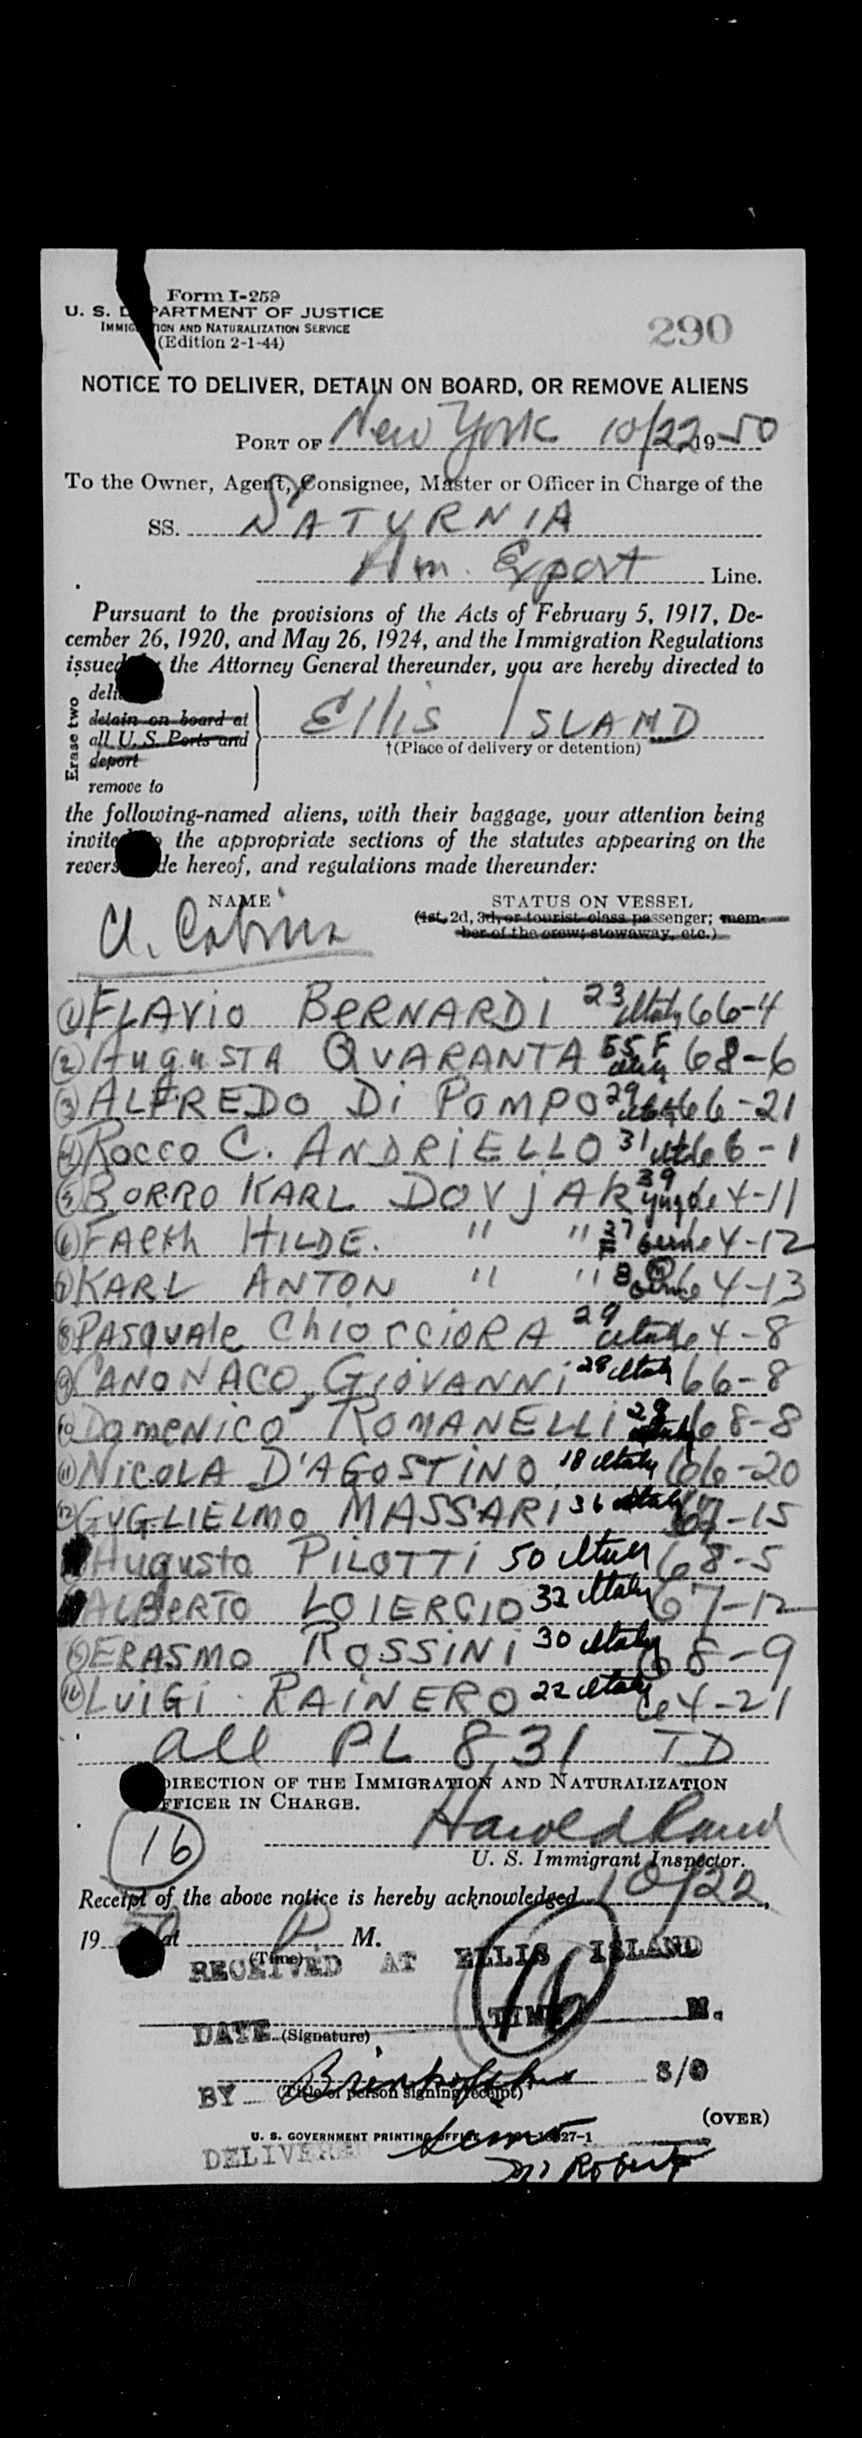 Form I-259
U. S. DEPARTMENT OF JUSTICE
IMMIGRATION AND NATURALIZATION SERVICE
(Edition 2-1-44)
290
NOTICE TO DELIVER, DETAIN ON BOARD, OR REMOVE ALIENS
PORT OF New York 10/22 1950
To the Owner, Agent, Consignee, Master or Officer in Charge of the
SS. SATURNIA
Am. Export Line.
Pursuant to the provisions of the Acts of February 5, 1917, De-
cember 26, 1920, and May 26, 1924, and the Immigration Regulations
issued by the Attorney General thereunder, you are hereby directed to
Erase two
deliver
detain on board at
all U. S. Ports and
deport
remove to
Ellis ISLAND
†(Place of delivery or detention)
the following-named aliens, with their baggage, your attention being
invited to the appropriate sections of the statutes appearing on the
reverse side hereof, and regulations made thereunder:
NAME
STATUS ON VESSEL
(1st, 2d, 3d, or tourist class passenger; mem-
ber of the crew; stowaway, etc.)
U. Cabins
1 FLAVio BeRNARDi 23 Italy 66-4
2 AuguSTA QUARANTA 55 F Italy 68-6
3 ALFREDO Di POMPO 29 Italy 66-21
4 Rocco C. ANDRiELLO 31 Italy 66-1
5 BORRO KARL DOVjAK 39 Yugo 64-11
6 FAeth HILDE. " " 27 F 64-12
7 KARL ANTON " " 8 M 64-13
8 PASquAle ChioccioRA 29 Italy 64-8
9 CANONACO, GiOVANNi 28 Italy 66-8
10 DomeNico ROMANELLi 29 Italy 68-8
11 NicOLA D'AGOSTiNO 18 Italy 66-20
12 GUGLIELMO MASSARi 36 Italy 67-15
Augusto PiLOTTi 50 Italy 68-5
ALBeRTO LOIERCIO 32 Italy 67-12
15 ERASMO ROSSiNi 30 Italy 68-9
16 LUiGi RAiNERO 22 Italy 64-21
all PL 831 TD
DIRECTION OF THE IMMIGRATION AND NATURALIZATION
OFFICER IN CHARGE.
16
Harold
U. S. Immigrant Inspector.
Receipt of the above notice is hereby acknowledged 10/22,
1950 at P. M.
(Time)
RECEIVED AT ELLIS ISLAND
16
DATE TIME M.
(Signature)
BY S/O
(Title of person signing receipt)
(OVER)
U. S. GOVERNMENT PRINTING OFFICE 27-1
DELIVERED
Roberts